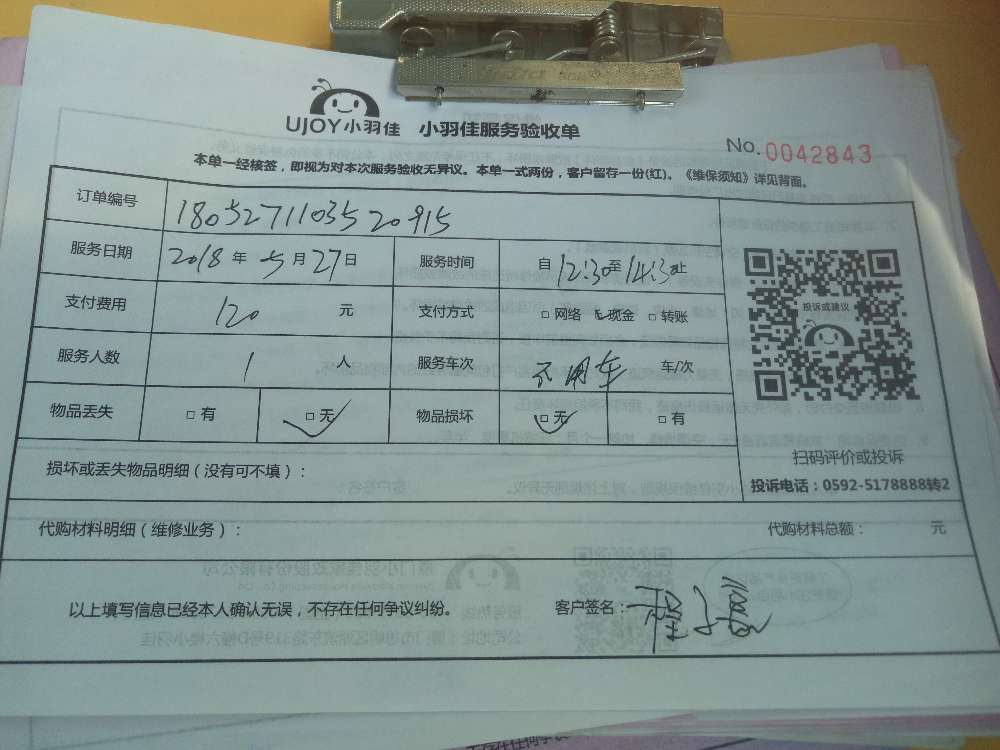 UJOY小羽佳 小羽佳服务验收单
No.0042843
本单一经核签，即视为对本次服务验收无异议。本单一式两份，客户留存一份(红)。《维保须知》详见背面。
订单编号 1805271103520915
服务日期 2018年5月27日 服务时间 自12:30至14:30止
支付费用 120元 支付方式 □网络 ✓现金 □转账
投诉或建议
服务人数 1人 服务车次 不用车 车/次
物品丢失 □有 □无✓ 物品损坏 □无✓ □有
扫码评价或投诉
投诉电话：0592-5178888转2
损坏或丢失物品明细（没有可不填）：
代购材料明细（维修业务）： 代购材料总额： 元
以上填写信息已经本人确认无误，不存在任何争议纠纷。 客户签名：